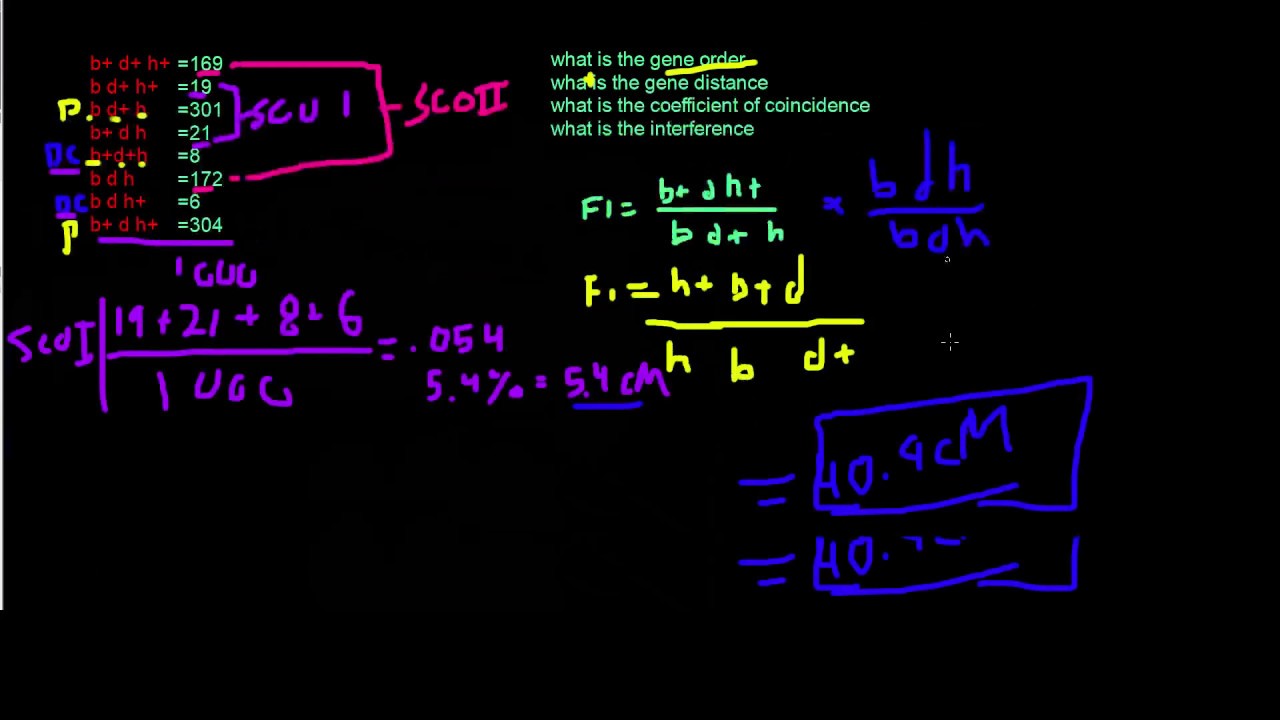 b+ d+ h+ =169
b d+ h+ =19
P b d+ h =301
b+ d h =21
DC b+d+h =8
b d h =172
DC b d h+ =6
P b+ d h+ =304
SCO I
SCO II
1000
what is the gene order
what is the gene distance
what is the coefficient of coincidence
what is the interference
F1= b+ d h+ x b d h
b d+ h b d h
F1 = h+ b+ d
h b d+
SCO I 19+21+8+6 = .054
1000
5.4% = 5.4 cM
= 40.9 cM
= 40.